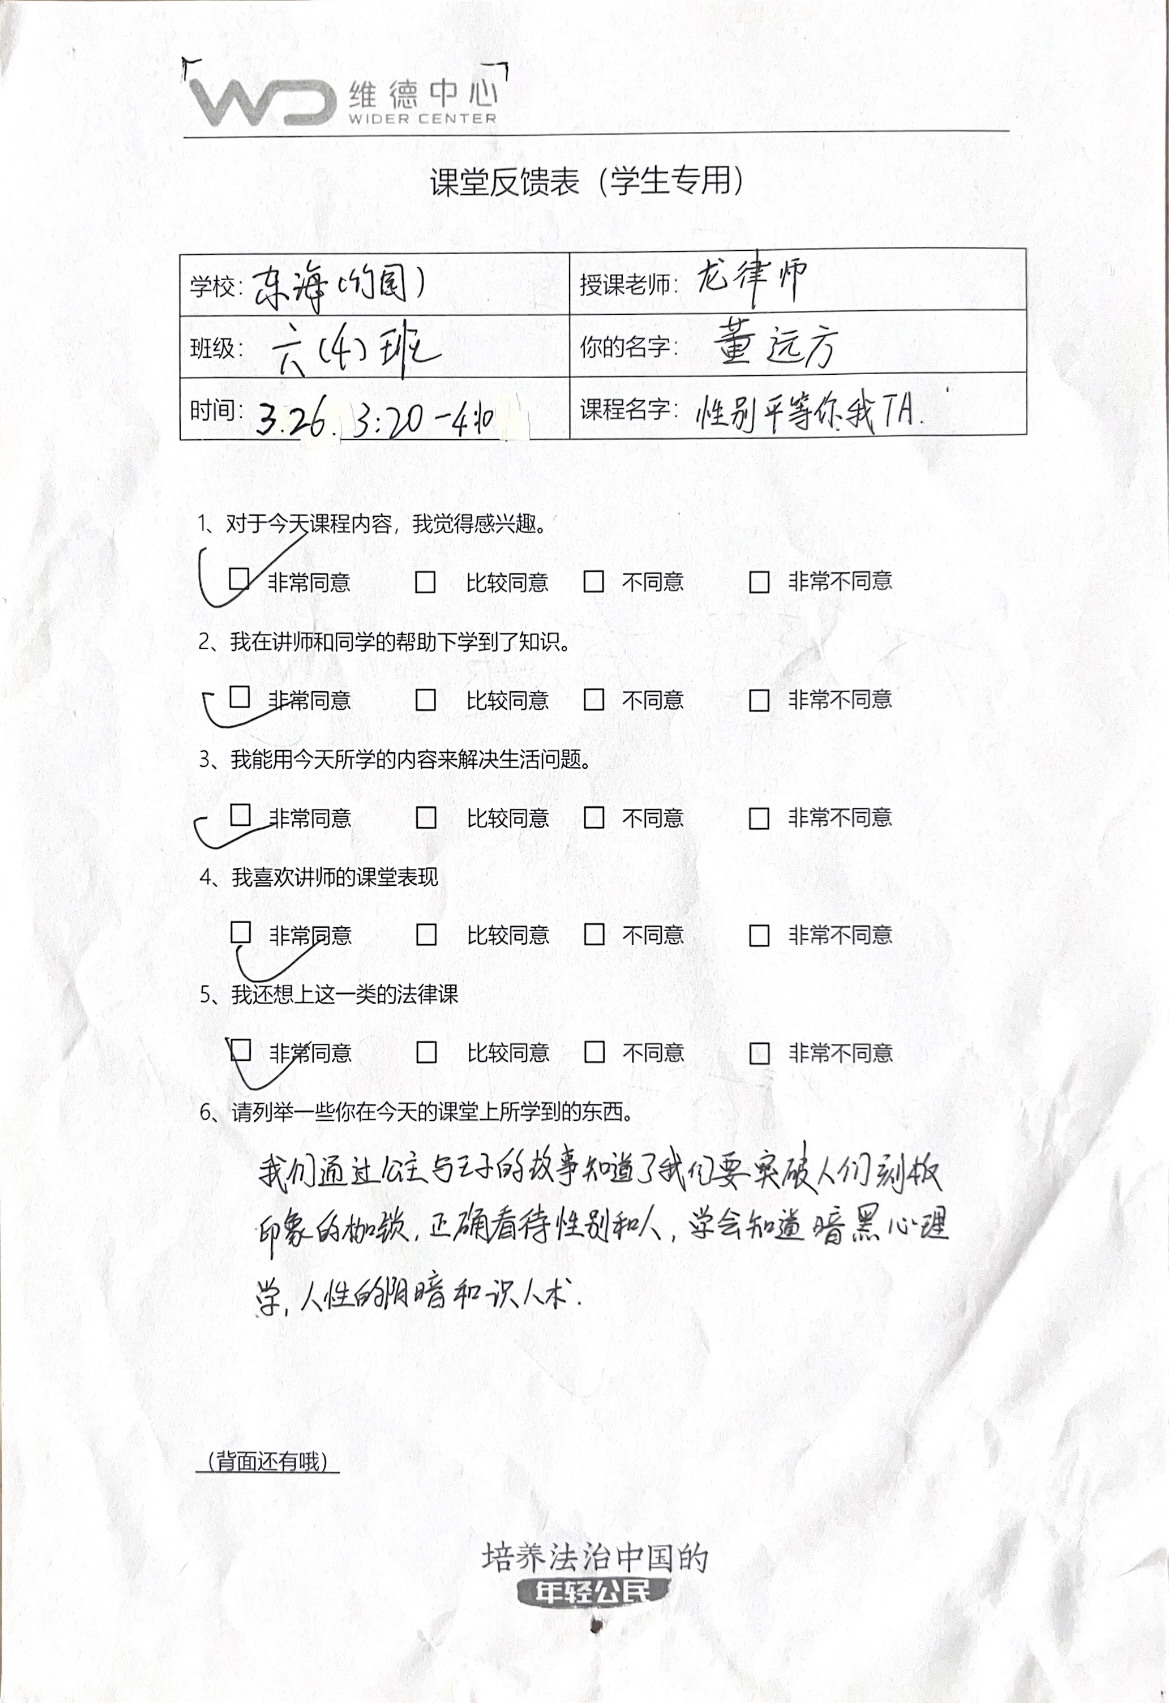 WD 维德中心
WIDER CENTER
课堂反馈表（学生专用）
学校：东海(均园) 授课老师：龙律师
班级：六(4)班 你的名字：董远方
时间：3.26. 3:20-4:10 课程名字：性别平等你我TA.
1、对于今天课程内容，我觉得感兴趣。
□ 非常同意 □ 比较同意 □ 不同意 □ 非常不同意
2、我在讲师和同学的帮助下学到了知识。
□ 非常同意 □ 比较同意 □ 不同意 □ 非常不同意
3、我能用今天所学的内容来解决生活问题。
□ 非常同意 □ 比较同意 □ 不同意 □ 非常不同意
4、我喜欢讲师的课堂表现
□ 非常同意 □ 比较同意 □ 不同意 □ 非常不同意
5、我还想上这一类的法律课
□ 非常同意 □ 比较同意 □ 不同意 □ 非常不同意
6、请列举一些你在今天的课堂上所学到的东西。
我们通过公主与王子的故事知道了我们要突破人们刻板
印象的枷锁,正确看待性别和人,学会知道暗黑心理
学,人性的阴暗和识人术.
（背面还有哦）
培养法治中国的
年轻公民